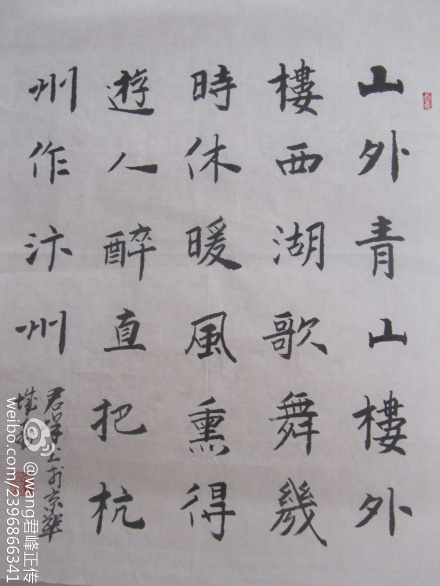 山外青山樓外
樓西湖歌舞幾
時休暖風熏得
遊人醉直把杭
州作汴州
君峯书于京華
@wang君峰正传
weibo.com/2396866341